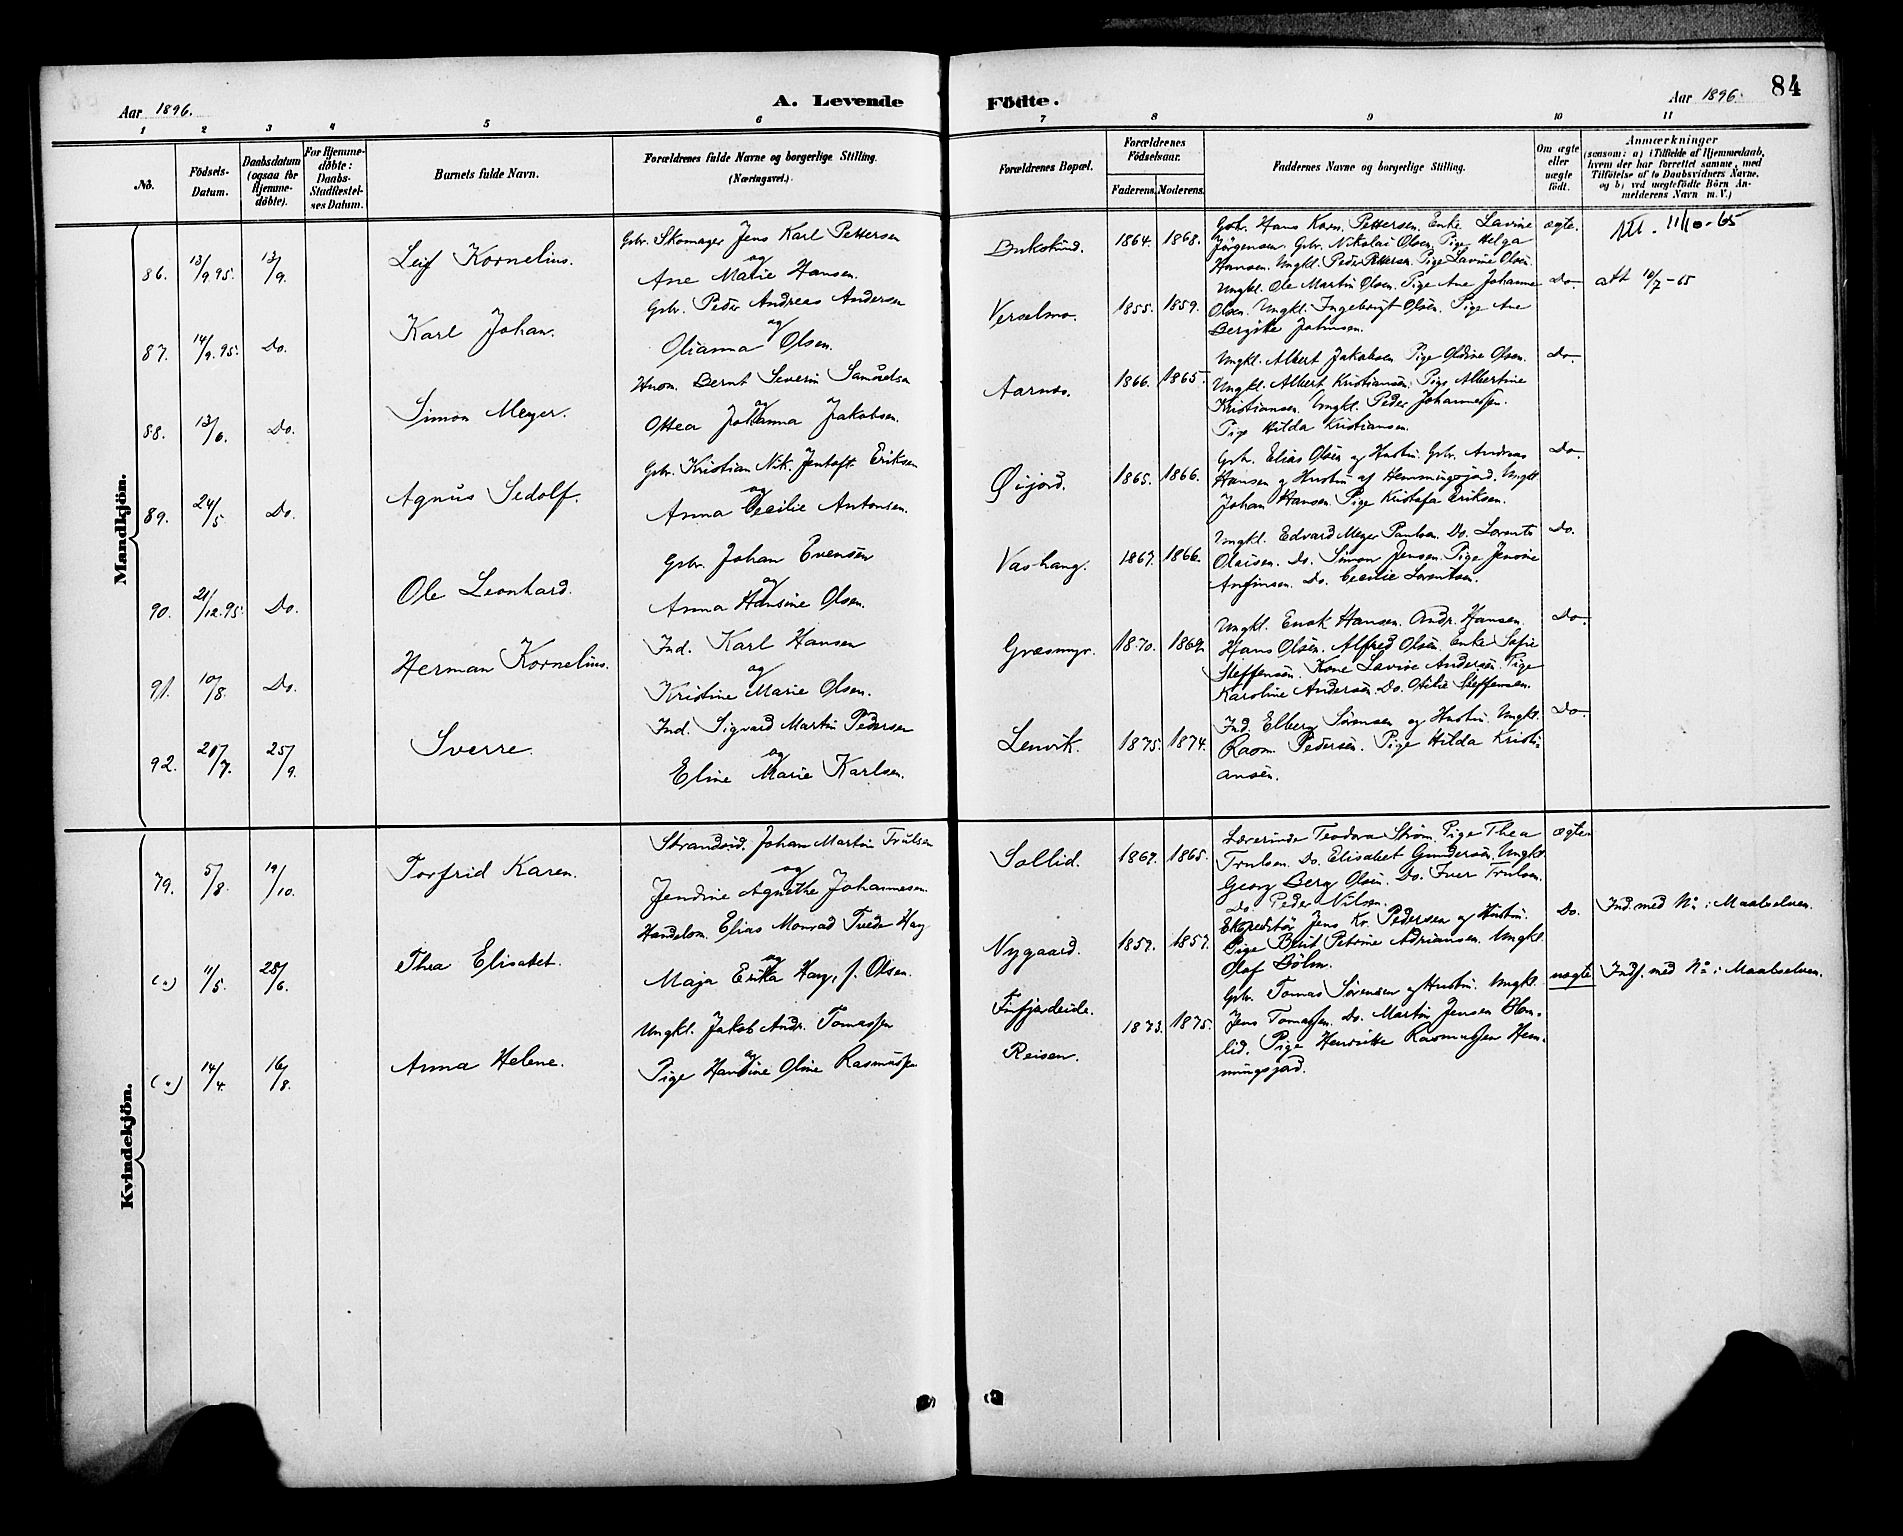 Aar 1896.
A. Levende
Födte.
Aar 1896.
84
1 2 3 4 5 6 7 8 9 10 11
No.
Födsels-
Datum.
Daabsdatum
(ogsaa for
Hjemme-
döbte).
For Hjemme-
döbte:
Daabs-
Stadfæstel-
ses Datum.
Barnets fulde Navn.
Forældrenes fulde Navne og borgerlige Stilling.
(Næringsvei.)
Forældrenes Bopæl.
Forældrenes
Födselsaar.
Faderens. Moderens.
Faddernes Navne og borgerlige Stilling.
Om ægte
eller
uægte
födt.
Anmærkninger
(saasom: a) i Tilfælde af Hjemmedaab,
hvem der har forrettet samme, med
Tilföielse af to Daabsvidners Navne,
og b) ved uægtefödte Börn An-
melderens Navn m. V.)
Mandkjön.
86. 13/9 95. 13/9. Leif Kornelius.
Gbr. Skomager Jens Karl Pettersen
og
Ane Marie Hansen.
1864. 1868.
Gbr. Hans Korn. Pettersen. Enke Lavine
Jörgensen. Gbr. Nikolai Olsen. Pige Helga
Hansen. Ungkl. Peder Pettersen. Pige Lavine Olsen.
ægte.
11/10-65
87. 14/9. 95. Do. Karl Johan.
Gbr. Peder Andreas Andersen
og
Olianna Olsen.
Verselmo. 1855. 1859.
Ungkl. Ole Martin Olsen. Pige Ane Johanne
Olsen. Ungkl. Ingebrigt Olsen. Pige Ane
Bergitte Johnsen.
Do.
att 10/7-65
88. 13/6. Do. Simon Meyer.
Husm. Bernt Severin Samuelsen
og
Ottea Johanna Jakobsen.
Aarnes. 1866. 1865.
Ungkl. Albert Jakobsen Pige Oldine Olsen.
Ungkl. Albert Kristiansen. Pige Albertine
Kristiansen. Ungkl. Peder Johannessen.
Pige Hilda Kristiansen.
Do.
89. 24/5. Do. Agnus Sedolf.
Gbr. Kristian Nik. Jentoft Eriksen
og
Anna Cecilie Antonsen.
Øijord. 1865. 1866.
Gbr. Elias Olsen og Hustru. Gbr. Andreas
Hansen og Hustru af Hemmingsjord. Ungkl.
Johan Hansen. Pige Kristofa Eriksen.
Do.
90. 21/12. 95. Do. Ole Leonhard.
Gbr. Johan Evensen
og
Anna Hansine Olsen.
Vashaug. 1867. 1866.
Ungkl. Edvard Meyer Paulsen. Do. Lorents
Olaisen. Do. Simon Jensen. Pige Jensine
Do. Cecilie Lorentsen.
Do.
91. 10/8. Do. Herman Kornelius.
Ind. Karl Hansen
og
Kristine Marie Olsen.
Græsmyr. 1870. 1869.
Ungkl. Enok Hansen. Andr. Hansen.
Hans Olsen. Alfred Olsen. Enke Sofie
Steffensen. Kone Lavine Andersen. Pige
Karoline Andersen. Do. Otilie Steffensen.
Do.
92. 20/7. 25/9. Sverre.
Ind. Sigvard Martin Pedersen
og
Eline Marie Karlsen.
Lenvik. 1875. 1874.
Ind. Elberg Sörensen og Hustru. Ungkl.
Rasm. Pedersen. Pige Hilda Kristi-
ansen.
Do.
Kvindekjön.
79. 5/8. 19/10. Torfrid Karen.
Strandsid. Johan Martin Trulsen
og
Jendine Agnethe Johannesen.
Sollid. 1867. 1865.
Lærerinde Teodora Strøm. Pige Thea
Trulsen. Do. Elisabet Gundersen. Ungkl.
Georg Berg Olsen. Do. Iver Trulsen.
Do. Peder Nilsen.
ægte.
(") 11/5. 28/6. Thea Elisabet.
Handelsm. Elias Monrad Tvede Hay
og
Maja Erika Hay, f. Olsen.
Nygaard. 1857. 1857.
Ekspeditör Jens Kr. Pedersen og Hustru.
Pige Petrine Adriansen. Ungkl.
Olaf Bölm.
Do.
Ind. med No i Maalselven.
(") 14/4. 16/8. Anna Helene.
Ungkl. Jakob Andr. Tomassen
og
Pige Hansine Oline Rasmussen
Finfjordeide.
Reisen.
1873. 1875.
Gbr. Tomas Sörensen og Hustru. Ungkl.
Jens Tomassen. Do. Martin Jensen Olon-
lid. Pige Henrikke Rasmussen Hem-
mingsjord.
uægte
Indf. med No i Maalselven.